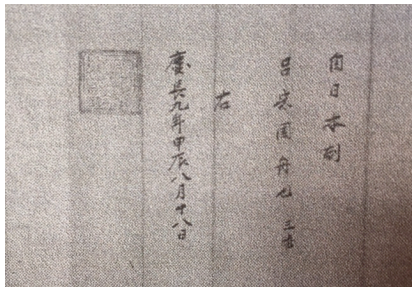 自日本到
呂宋國舟也
右
慶長九年甲辰八月十八日